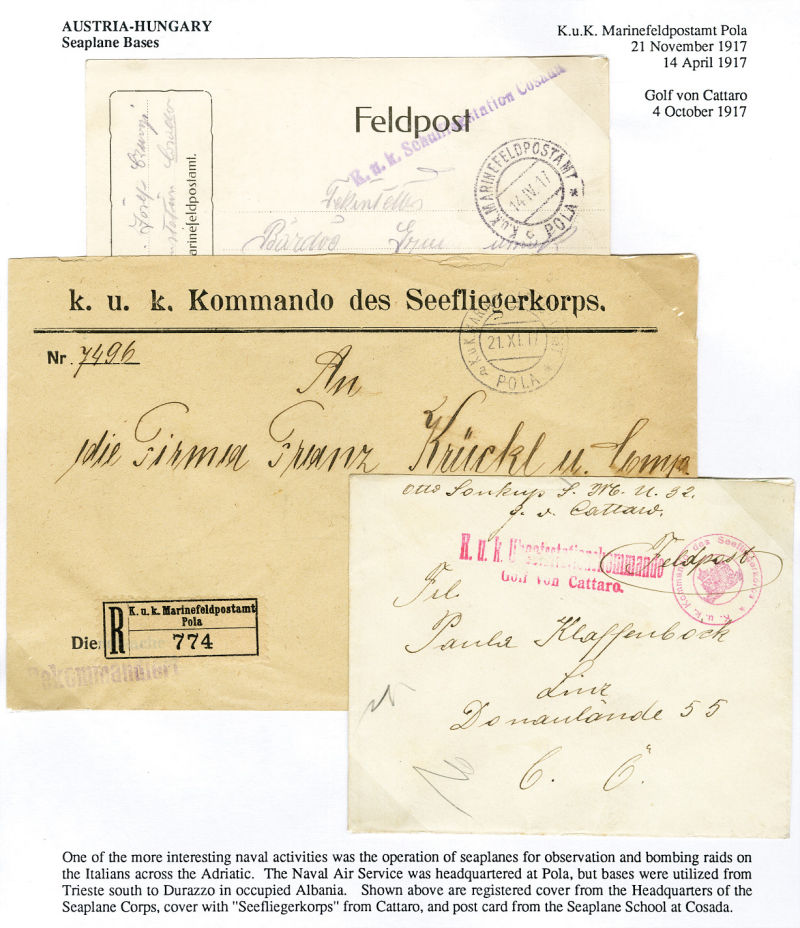 AUSTRIA-HUNGARY
Seaplane Bases
K.u.K. Marinefeldpostamt Pola
21 November 1917
14 April 1917
Golf von Cattaro
4 October 1917
Feldpost
K. u. k. Station Cosada
K.u.K. MARINEFELDPOSTAMT
14.IV.17
POLA
Marinefeldpostamt.
Bárdió
k. u. k. Kommando des Seefliegerkorps.
Nr. 7496
21.XI.17
POLA
An
die Firma Franz Krückl u. Comp.
R
K. u. k. Marinefeldpostamt
Pola
774
Die
Rekommandiert
Otto Soukup S. M. U. 32.
g. v. Cattaro.
Feldpost
K. u. k.
Golf von Cattaro.
K. u. k. Kommando des Seefliegerkorps
Frl.
Paula Klaffenböck
Linz
Donaulände 55
O. Ö.
One of the more interesting naval activities was the operation of seaplanes for observation and bombing raids on
the Italians across the Adriatic. The Naval Air Service was headquartered at Pola, but bases were utilized from
Trieste south to Durazzo in occupied Albania. Shown above are registered cover from the Headquarters of the
Seaplane Corps, cover with "Seefliegerkorps" from Cattaro, and post card from the Seaplane School at Cosada.